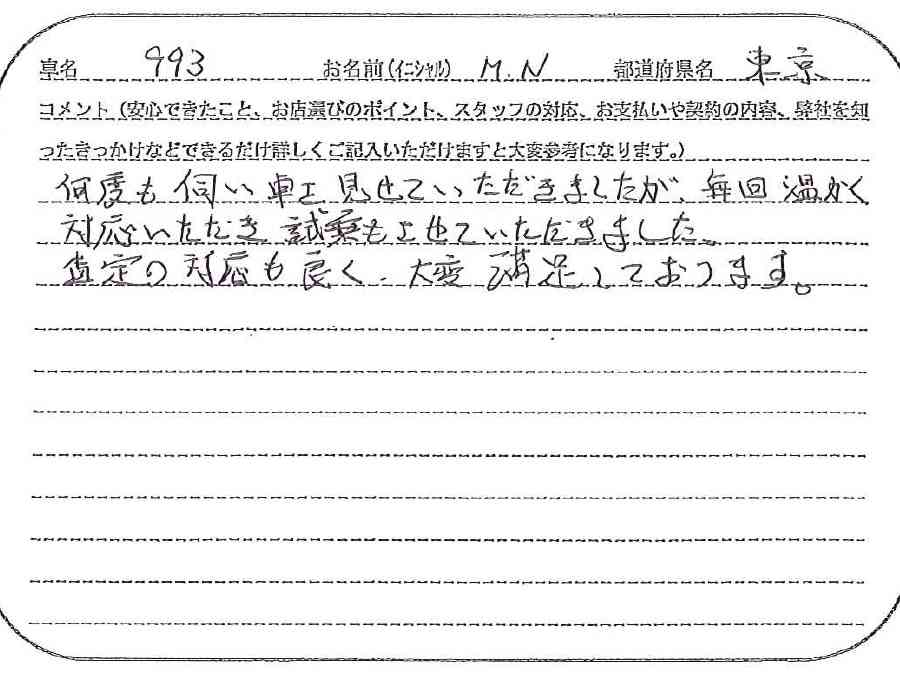 車名 993 お名前(イニシャル) M.N 都道府県名 東京
コメント(安心できたこと、お店選びのポイント、スタッフの対応、お支払いや契約の内容、弊社を知
ったきっかけなどできるだけ詳しくご記入いただけますと大変参考になります。)
何度も伺い車を見せていただきましたが、毎回温かく
対応いただき試乗もさせていただきました。
査定の対応も良く、大変満足しております。